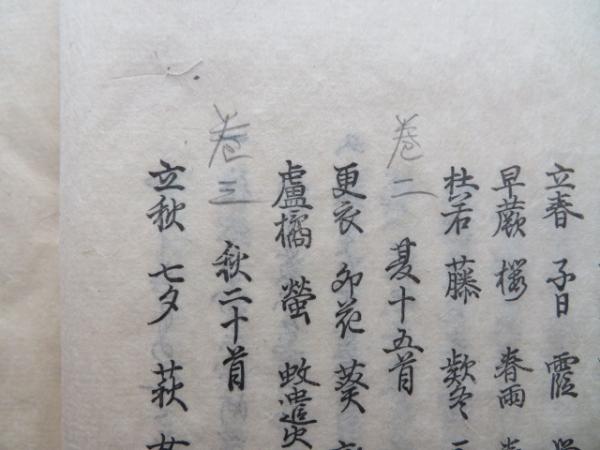 立春 子日 霞
早蕨 櫻 春雨
杜若 藤 欵冬
巻二 夏十五首
更衣 卯花 葵
盧橘 螢 蚊遣火
巻三 秋二十首
立秋 七夕 萩 女